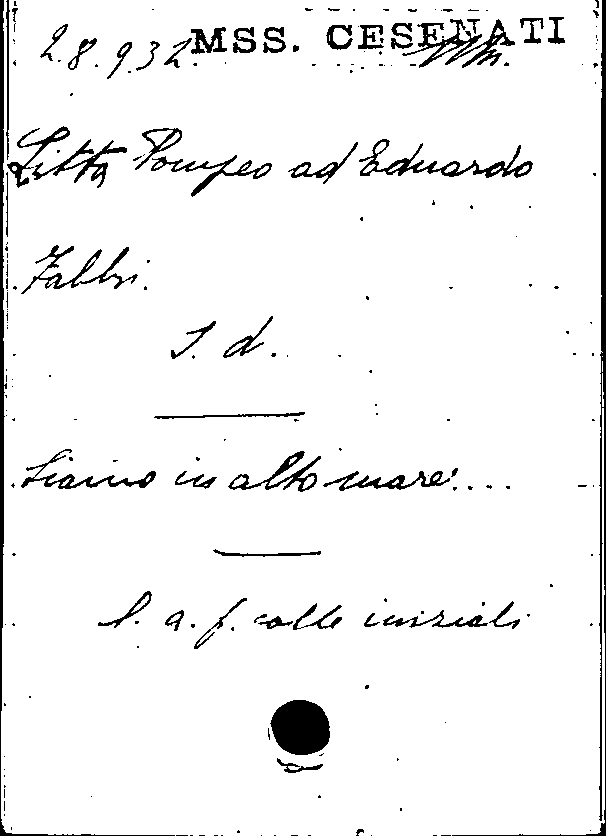 2.8.932 MSS. CESENATI
Litta Pompeo ad Eduardo
Fabbri.
S. d.
Siamo in alto mare....
l. a. f. colle iniziali